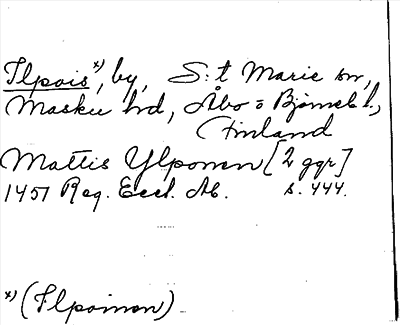 Ilpois *), by, S:t Marie sn,
Masku hd, Åbo o Bjørneb. l.,
Finland
Mattis Ylponen [2 ggr]
1451 Reg. Eccl. Ab. s. 444.
*) (Ilpoinen)